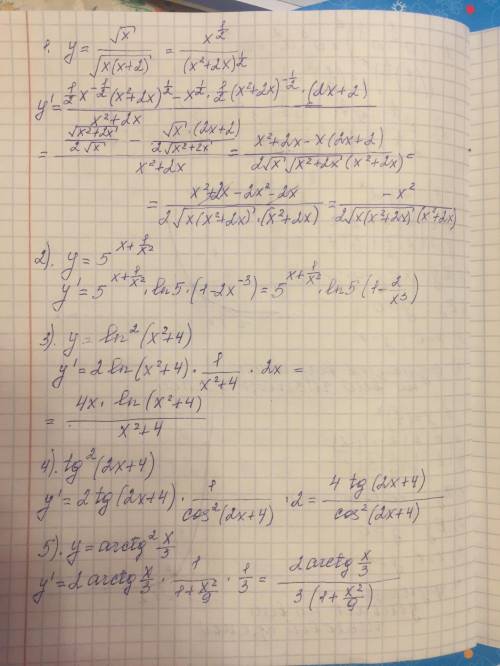 1. y = √x / √(x(x+2)) = x^(1/2) / (x²+2x)^(1/2)
y' = (1/2 x^(-1/2) (x²+2x)^(1/2) - x^(1/2) · 1/2 (x²+2x)^(-1/2) · (2x+2)) / (x²+2x)
= (√(x²+2x) / (2√x) - √x · (2x+2) / (2√(x²+2x))) / (x²+2x) = (x²+2x - x(2x+2)) / (2√x √(x²+2x) (x²+2x)) =
= (x²+2x - 2x² - 2x) / (2√(x(x²+2x)) · (x²+2x)) = -x² / (2√(x(x²+2x)) (x²+2x))
2). y = 5^(x + 1/x²)
y' = 5^(x + 1/x²) · ln5 · (1 - 2x^(-3)) = 5^(x + 1/x²) · ln5 (1 - 2/x³)
3). y = ln²(x²+4)
y' = 2 ln(x²+4) · 1/(x²+4) · 2x =
= 4x · ln(x²+4) / (x²+4)
4). tg²(2x+4)
y' = 2 tg(2x+4) · 1/cos²(2x+4) · 2 = 4 tg(2x+4) / cos²(2x+4)
5). y = arctg² x/3
y' = 2 arctg x/3 · 1/(1 + x²/9) · 1/3 = 2 arctg x/3 / (3(1 + x²/9))